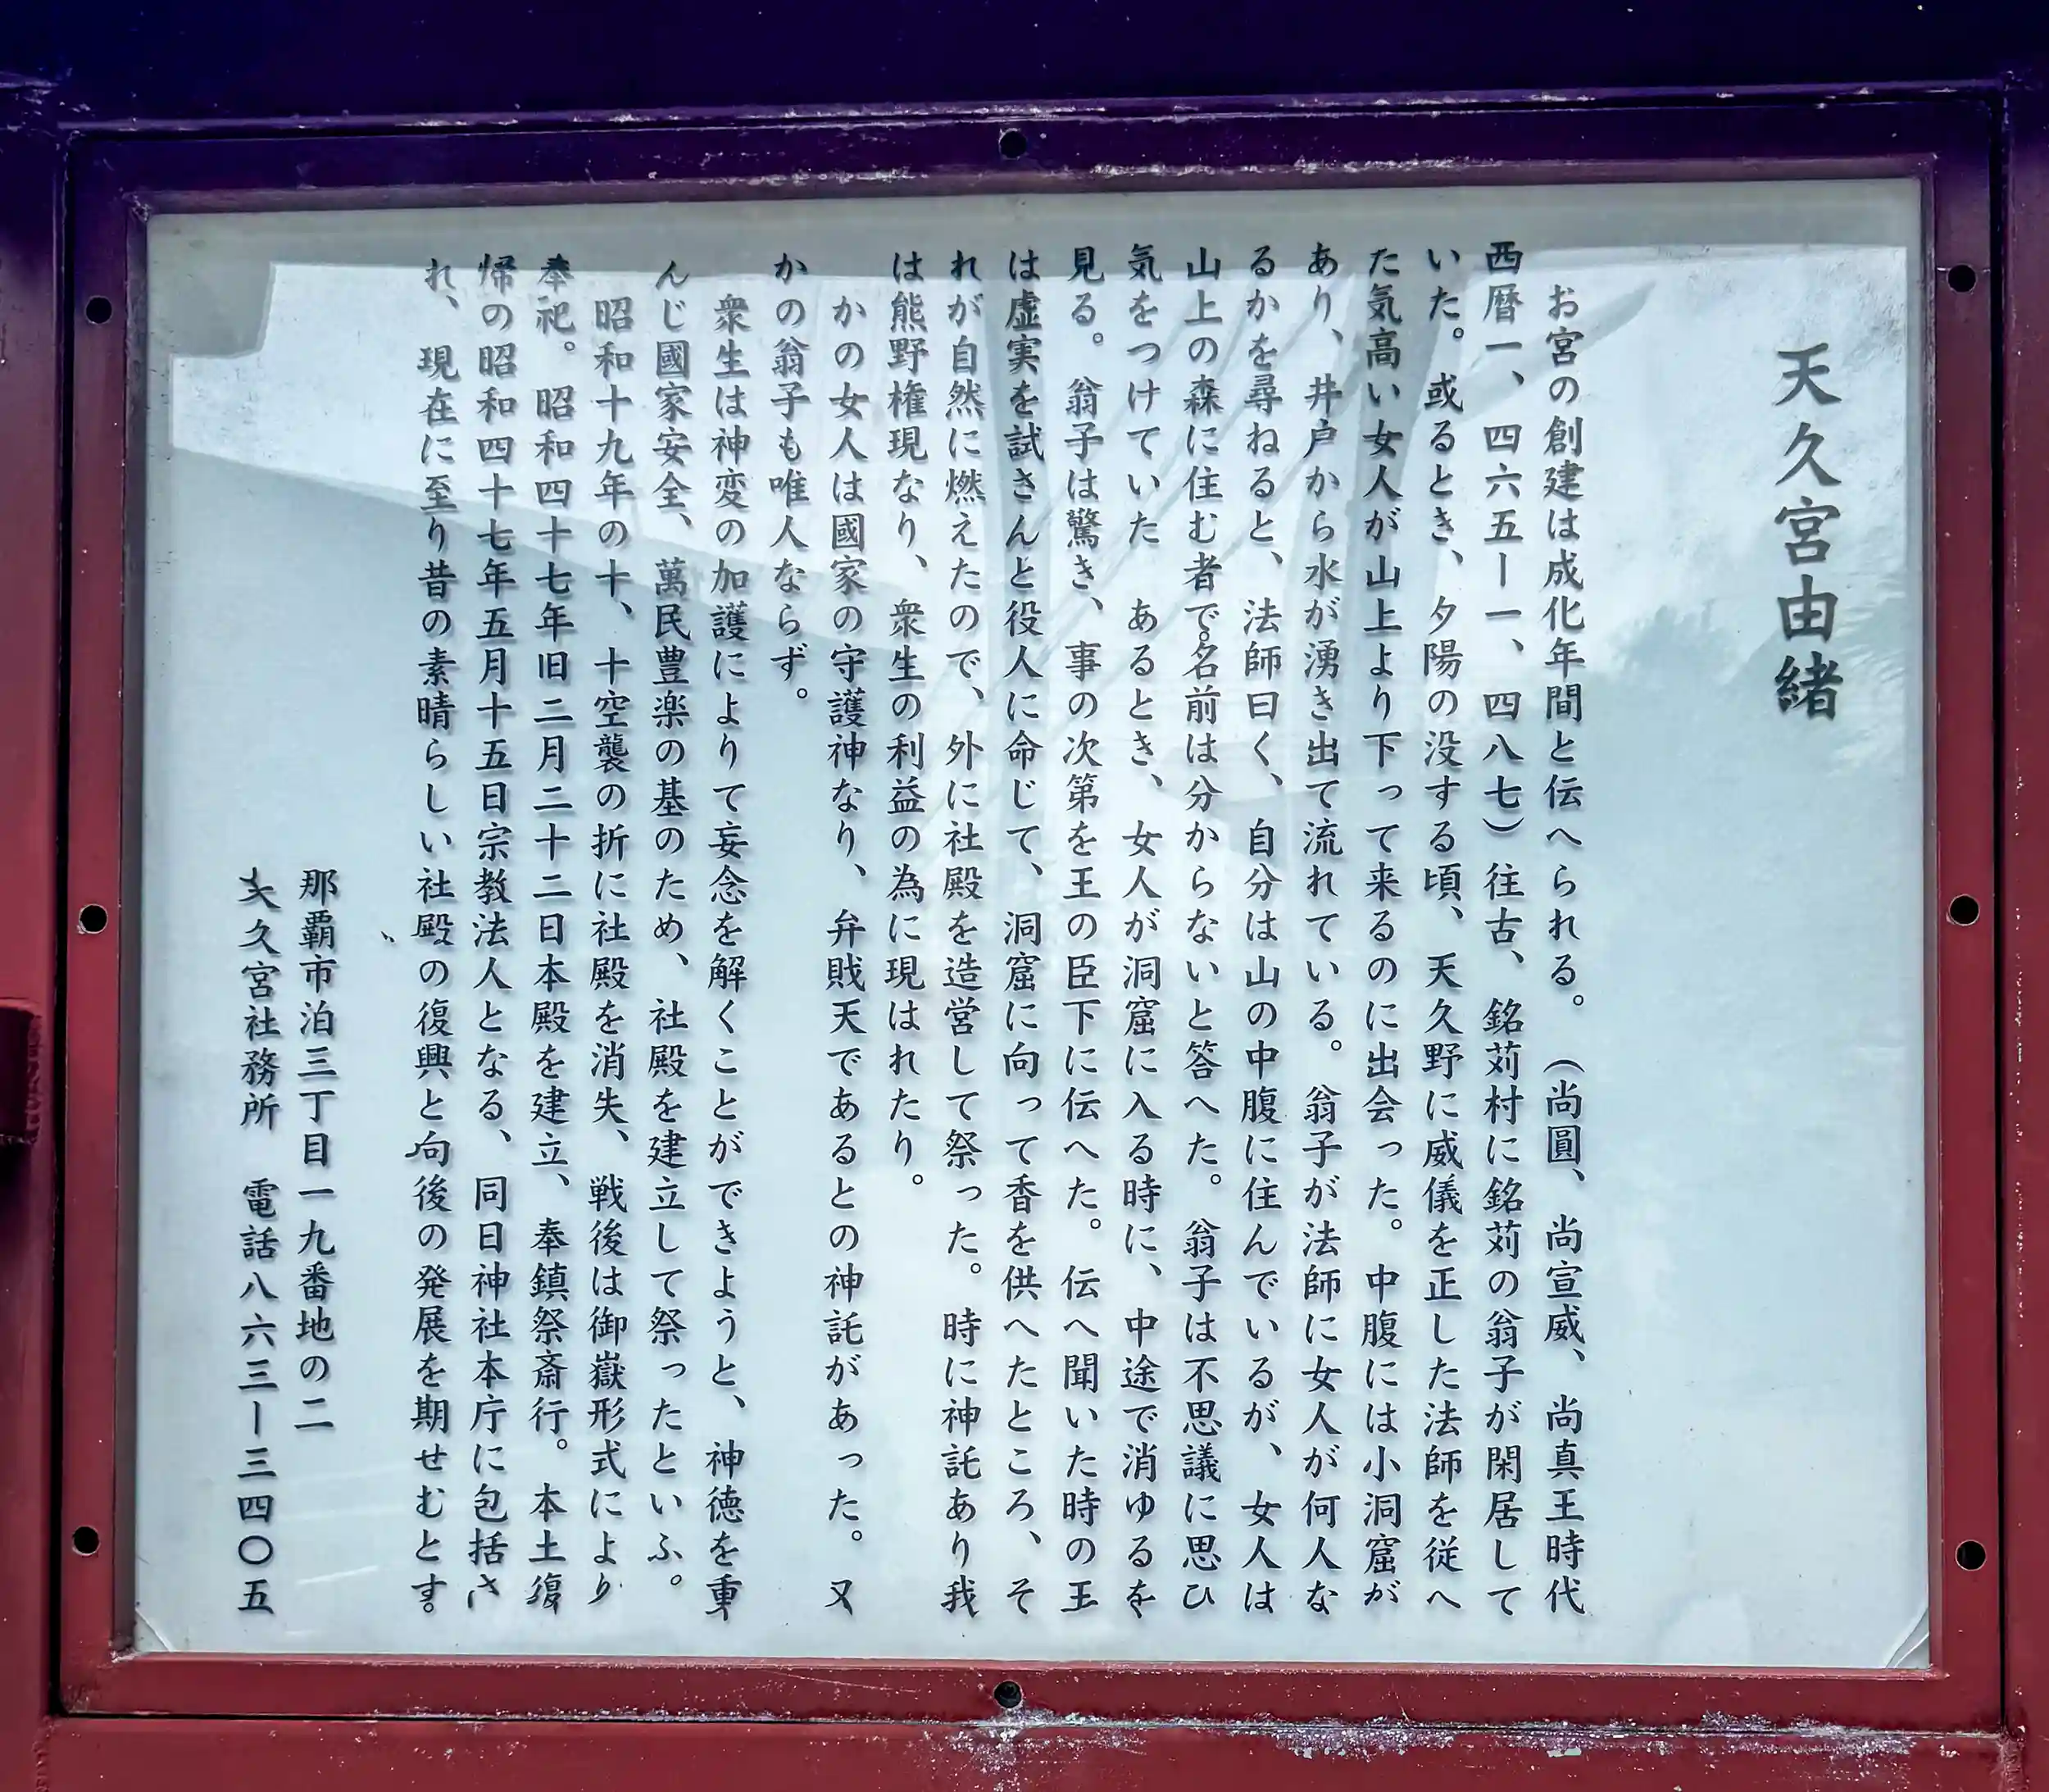 天久宮由緒
お宮の創建は成化年間と伝へられる。（尚圓、尚宣威、尚真王時代
西暦一、四六五ー一、四八七）往古、銘苅村に銘苅の翁子が閑居して
いた。或るとき、夕陽の没する頃、天久野に威儀を正した法師を従へ
た気高い女人が山上より下って来るのに出会った。中腹には小洞窟が
あり、井戸から水が湧き出て流れている。翁子が法師に女人が何人な
るかを尋ねると、法師曰く、自分は山の中腹に住んでいるが、女人は
山上の森に住む者で。名前は分からないと答へた。翁子は不思議に思ひ
気をつけていた　あるとき、女人が洞窟に入る時に、中途で消ゆるを
見る。翁子は驚き、事の次第を王の臣下に伝へた。伝へ聞いた時の王
は虚実を試さんと役人に命じて、洞窟に向って香を供へたところ、そ
れが自然に燃えたので、外に社殿を造営して祭った。時に神託あり我
は熊野権現なり、衆生の利益の為に現はれたり。
かの女人は國家の守護神なり、弁戝天であるとの神託があった。又
かの翁子も唯人ならず。
衆生は神変の加護によりて妄念を解くことができようと、神徳を重
んじ國家安全、萬民豊楽の基のため、社殿を建立して祭ったといふ。
昭和十九年の十、十空襲の折に社殿を消失、戦後は御嶽形式により
奉祀。昭和四十七年旧二月二十二日本殿を建立、奉鎮祭斎行。本土復
帰の昭和四十七年五月十五日宗教法人となる、同日神社本庁に包括さ
れ、現在に至り昔の素晴らしい社殿の復興と向後の発展を期せむとす。
那覇市泊三丁目一九番地の二
天久宮社務所　電話八六三ー三四〇五